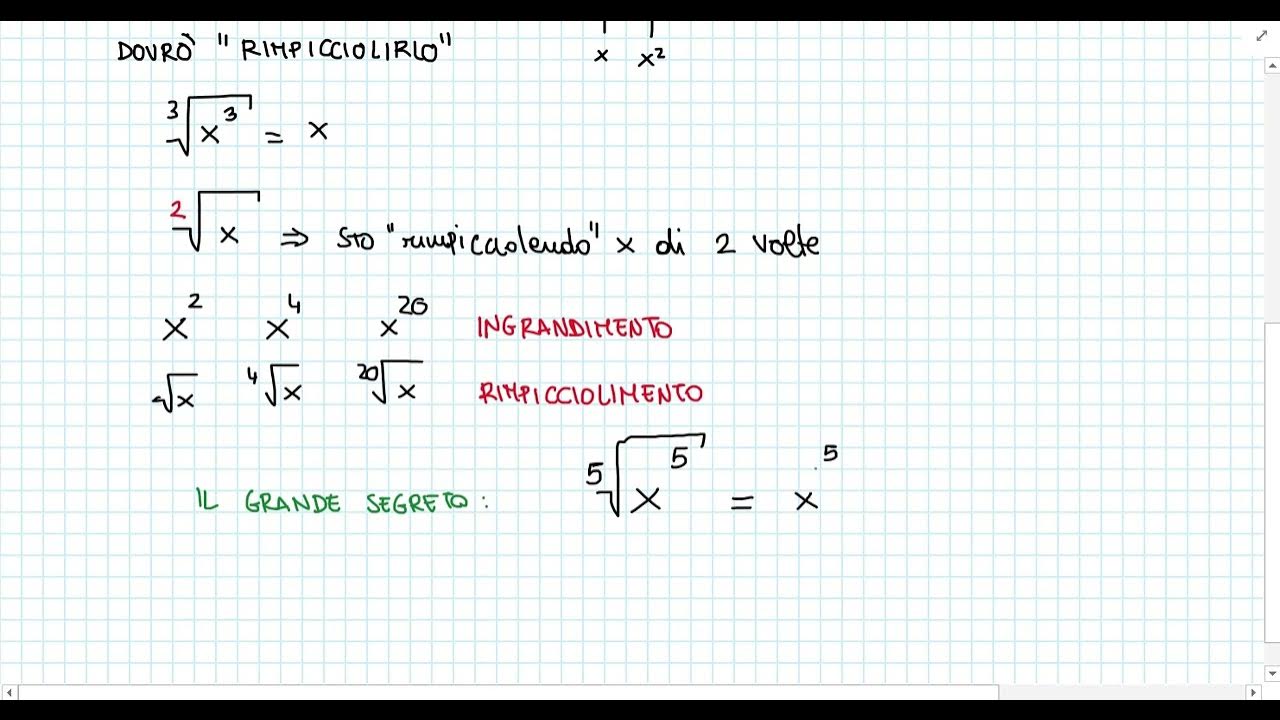 DOVRÒ "RIMPICCIOLIRLO"
x x²
³√x³ = x
²√x ⇒ STO "rimpicciolendo" x di 2 volte
x² x⁴ x²⁰ INGRANDIMENTO
√x ⁴√x ²⁰√x RIMPICCIOLIMENTO
IL GRANDE SEGRETO: ⁵√x⁵ = x⁵